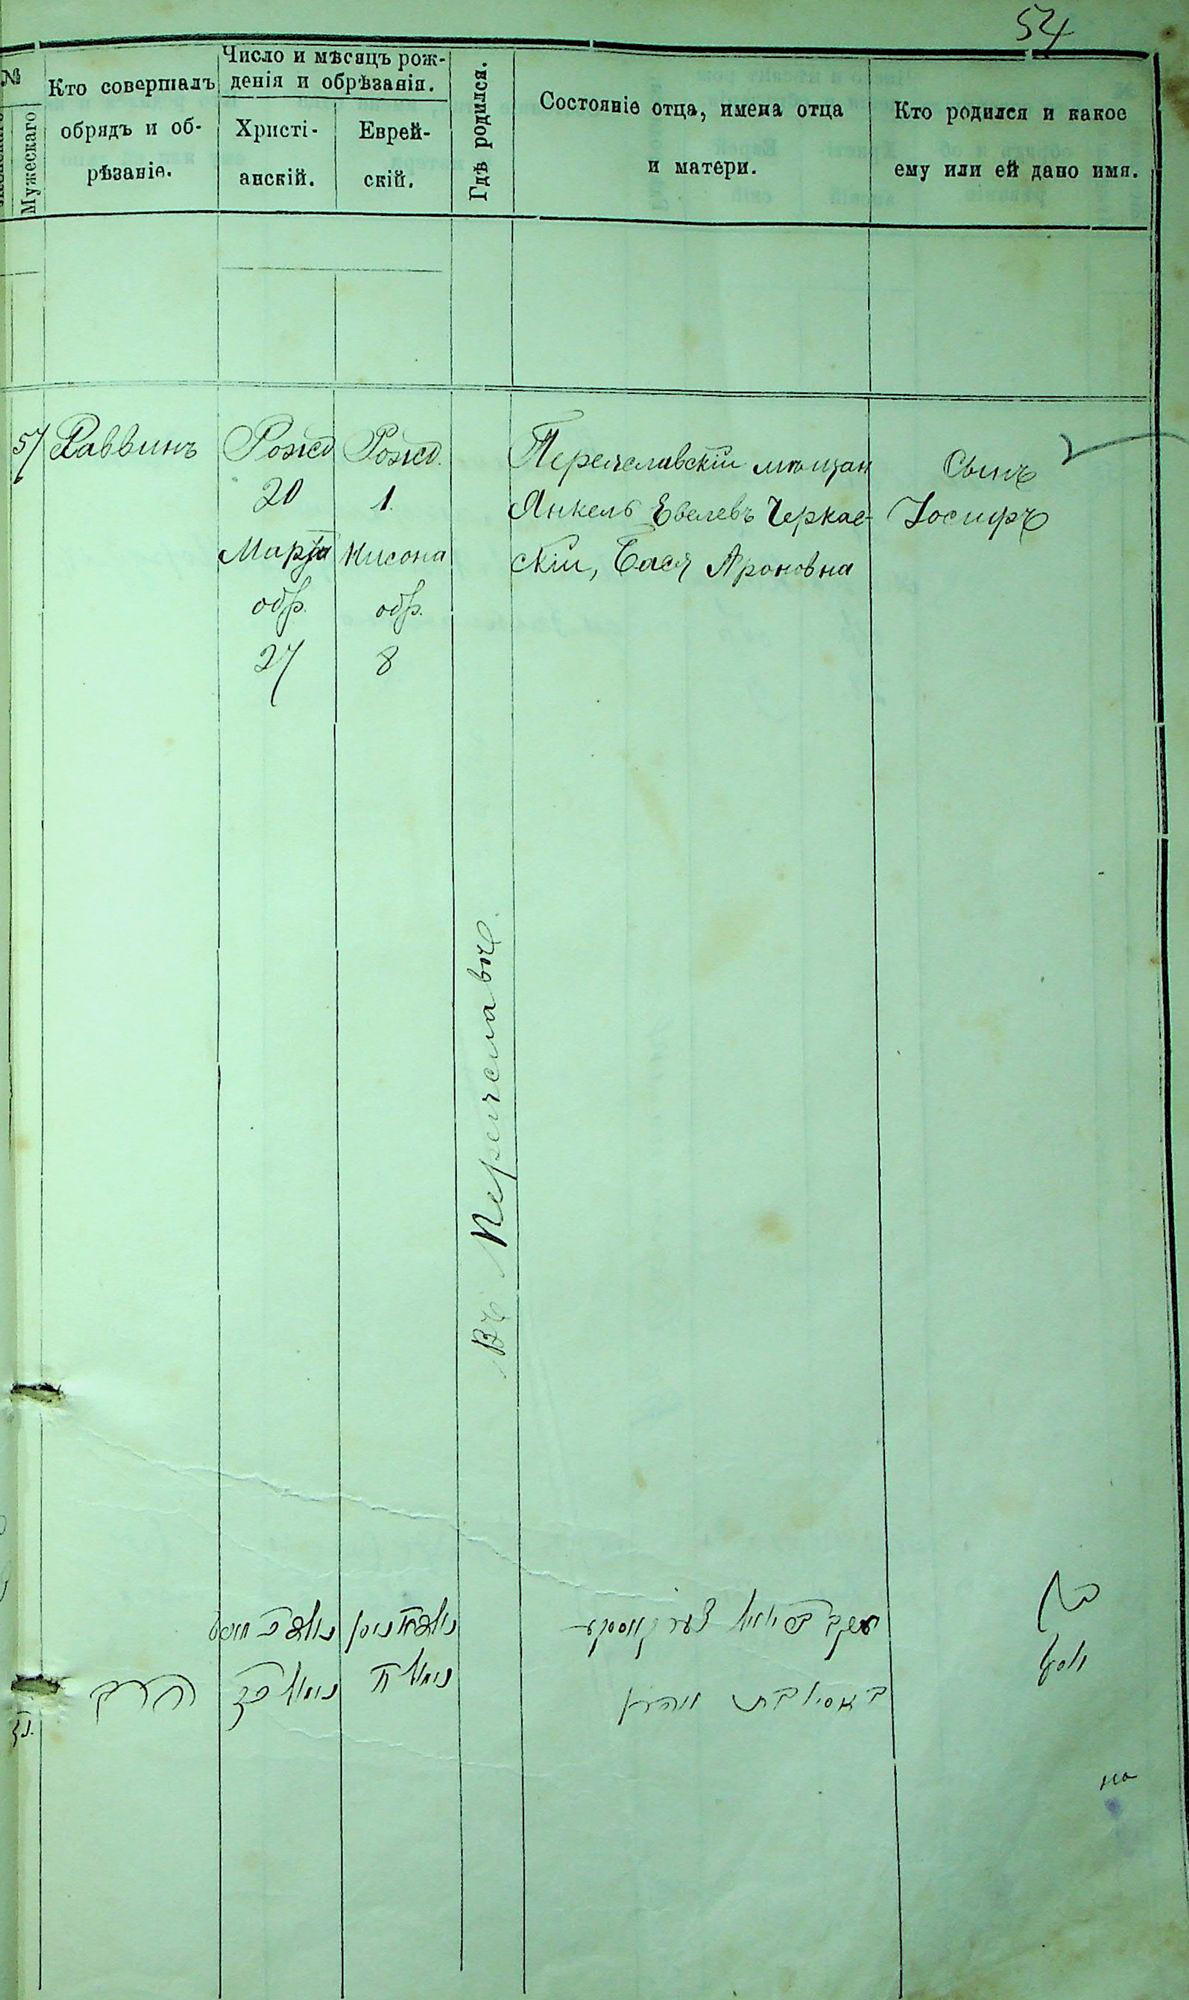 54
№
Мужескаго
Кто совершалъ
обрядъ и об-
рѣзаніе.
Число и мѣсяцъ рож-
денія и обрѣзанія.
Христі-
анскій.
Еврей-
скій.
Гдѣ родился.
Состояніе отца, имена отца
и матери.
Кто родился и какое
ему или ей дано имя.
57
Раввинъ
Рожд
20
Марта
обр.
27
Рожд.
1.
Нисона
обр.
8
Въ Переяславѣ.
Переяславскій мѣщан
Янкель Евелевъ Черкас-
скій, Бася Ароновна
Сынъ
Іосифъ
בן
יוסף
יעקב
באסיא בת אהרן
נולד
נולד א ניסן
נימול
נימול ח
הרב
נז.